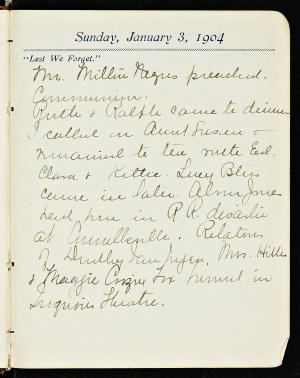 Sunday, January 3, 1904
"Lest We Forget."
Mr. Preached.
Communion.
Ruth & Ralph came to dinner
I called on Aunt Susan &
remained to tea with Ed.
Clara & Kittie Lucy Bliss
came in later. Alma Jones
in R.R. disaster
at . Relatives
of Dudley Van , Mrs.
& Maggie Fox burned in
Iroquois Theatre.